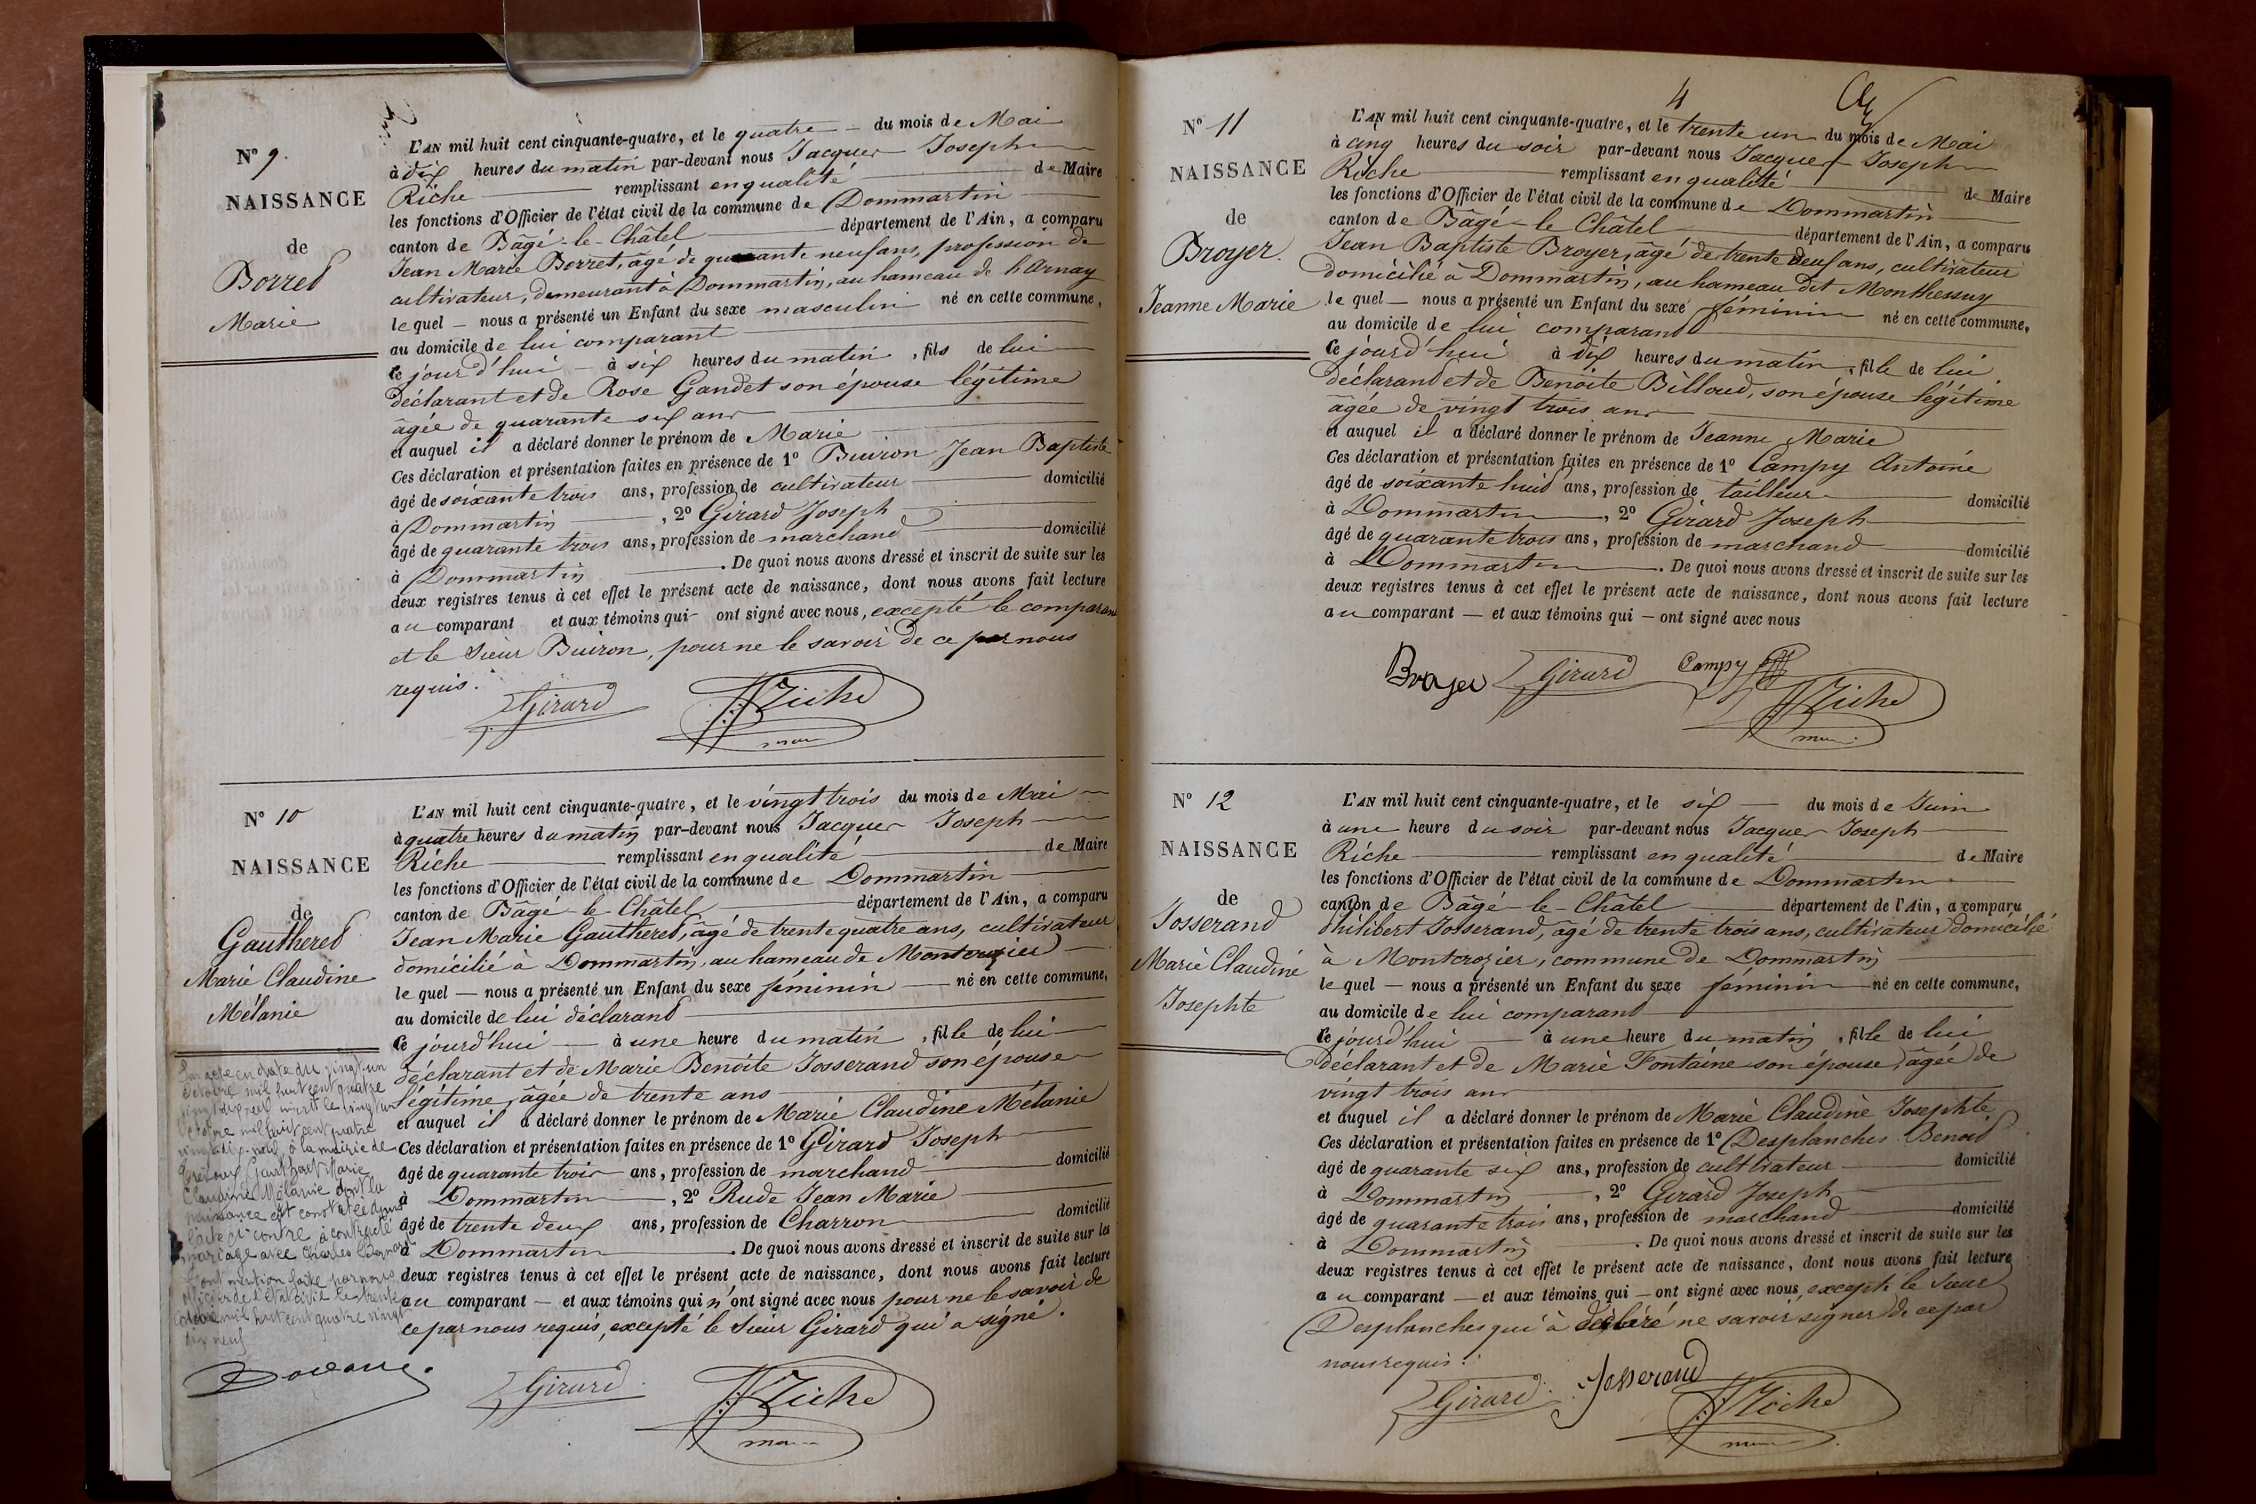 N° 9.
NAISSANCE
de
Borret
Marie
L'AN mil huit cent cinquante-quatre, et le quatre — du mois de Mai
à dix heures du matin par-devant nous Jacques Joseph
Riche remplissant en qualité de Maire
les fonctions d'Officier de l'état civil de la commune de Dommartin
canton de Bâgé-le-Châtel département de l'Ain, a comparu
Jean Marie Borret, âgé de quarante neuf ans, profession de
cultivateur, demeurant à Dommartin, au hameau de l'Arnay
lequel — nous a présenté un Enfant du sexe masculin né en cette commune,
au domicile de lui comparant
Ce jour d'hui — à six heures du matin, fils de lui
déclarant et de Rose Gandet son épouse légitime
âgée de quarante six ans
et auquel il a déclaré donner le prénom de Marie
Ces déclaration et présentation faites en présence de 1° Buiron Jean Baptiste
âgé de soixante trois ans, profession de cultivateur domicilié
à Dommartin, 2° Girard Joseph
âgé de quarante trois ans, profession de marchand domicilié
à Dommartin. De quoi nous avons dressé et inscrit de suite sur les
deux registres tenus à cet effet le présent acte de naissance, dont nous avons fait lecture
au comparant et aux témoins qui — ont signé avec nous, excepté le comparant
et le Sieur Buiron, pour ne le savoir de ce par nous
requis.
Girard JJRiche
maire
N° 10
NAISSANCE
de
Gautheret
Marie Claudine
Mélanie
L'AN mil huit cent cinquante-quatre, et le vingt trois du mois de Mai
à quatre heures du matin par-devant nous Jacques Joseph
Riche remplissant en qualité de Maire
les fonctions d'Officier de l'état civil de la commune de Dommartin
canton de Bâgé-le-Châtel département de l'Ain, a comparu
Jean Marie Gautheret, âgé de trente quatre ans, cultivateur
domicilié à Dommartin, au hameau de Montcrozier
lequel — nous a présenté un Enfant du sexe féminin né en cette commune,
au domicile de lui déclarant
Ce jourd'hui — à une heure du matin, fille de lui
déclarant et de Marie Benoite Josserand son épouse
légitime, âgée de trente ans
et auquel il a déclaré donner le prénom de Marie Claudine Mélanie
Ces déclaration et présentation faites en présence de 1° Girard Joseph
âgé de quarante trois ans, profession de marchand domicilié
à Dommartin, 2° Rude Jean Marie
âgé de trente deux ans, profession de Charron domicilié
à Dommartin. De quoi nous avons dressé et inscrit de suite sur les
deux registres tenus à cet effet le présent acte de naissance, dont nous avons fait lecture
au comparant — et aux témoins qui n'ont signé avec nous pour ne le savoir de
ce par nous requis, excepté le Sieur Girard qui a signé.
Par acte en date du vingt un
octobre mil huit cent quatre
vingt dix neuf
octobre mil huit cent quatre
vingt dix-neuf à la mairie de
Marie
Claudine Mélanie dont la
naissance est constatée dans
l'acte ci-contre a contracté
mariage avec Charles
Dont mention faite par nous
officier de l'état civil le trente
octobre mil huit cent quatre vingt
dix neuf
Girard JJRiche
maire
4
N° 11
NAISSANCE
de
Broyer.
Jeanne Marie
L'AN mil huit cent cinquante-quatre, et le trente un du mois de Mai
à cinq heures du soir par-devant nous Jacques Joseph
Riche remplissant en qualité de Maire
les fonctions d'Officier de l'état civil de la commune de Dommartin
canton de Bâgé-le Châtel département de l'Ain, a comparu
Jean Baptiste Broyer, âgé de trente deux ans, cultivateur
domicilié à Dommartin, au hameau dit Monthessuy
lequel — nous a présenté un Enfant du sexe féminin né en cette commune,
au domicile de lui comparant
Ce jourd'hui à dix heures du matin, fille de lui
déclarant et de Benoite Billoud, son épouse légitime
âgée de vingt trois ans
et auquel il a déclaré donner le prénom de Jeanne Marie
Ces déclaration et présentation faites en présence de 1° Campy Antoine
âgé de soixante huit ans, profession de tailleur domicilié
à Dommartin, 2° Girard Joseph
âgé de quarante trois ans, profession de marchand domicilié
à Dommartin. De quoi nous avons dressé et inscrit de suite sur les
deux registres tenus à cet effet le présent acte de naissance, dont nous avons fait lecture
au comparant — et aux témoins qui — ont signé avec nous
Broyer Girard Campy
JJRiche
maire
N° 12
NAISSANCE
de
Josserand
Marie Claudine
Josephte
L'AN mil huit cent cinquante-quatre, et le six — du mois de Juin
à une heure du soir par-devant nous Jacques Joseph
Riche remplissant en qualité de Maire
les fonctions d'Officier de l'état civil de la commune de Dommartin
canton de Bâgé-le-Châtel département de l'Ain, a comparu
Philibert Josserand, âgé de trente trois ans, cultivateur domicilié
à Montcrozier, commune de Dommartin
lequel — nous a présenté un Enfant du sexe féminin né en cette commune,
au domicile de lui comparant
Ce jourd'hui — à une heure du matin, fille de lui
déclarant et de Marie Fontaine son épouse, âgée de
vingt trois ans
et auquel il a déclaré donner le prénom de Marie Claudine Josephte
Ces déclaration et présentation faites en présence de 1° Desplanches Benoit
âgé de quarante six ans, profession de cultivateur domicilié
à Dommartin, 2° Girard Joseph
âgé de quarante trois ans, profession de marchand domicilié
à Dommartin. De quoi nous avons dressé et inscrit de suite sur les
deux registres tenus à cet effet le présent acte de naissance, dont nous avons fait lecture
au comparant — et aux témoins qui — ont signé avec nous, excepté le Sieur
Desplanches qui a déclaré ne savoir signer de ce par
nous requis.
Girard Josserand
JJRiche
maire